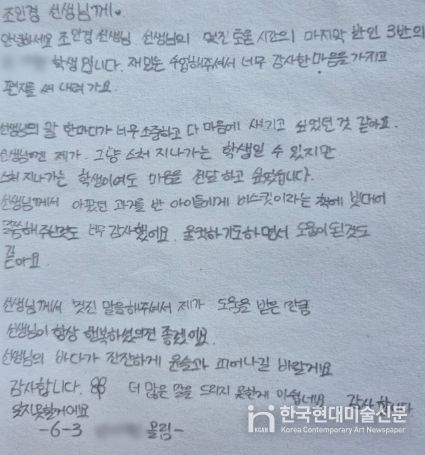 조인경 선생님께
안녕하세요 조인경 선생님 선생님의 멋진 도움 시간의 마지막 반인 3반의
학생입니다. 재밌는 수업해주셔서 너무 감사한 마음을 가지고
편지를 써 내려가요.
선생님의 말 한마디가 너무 소중하고 다 마음에 새기고 싶었던 것 같아요.
선생님껜 제가 그냥 스쳐 지나가는 학생일 수 있지만
스쳐 지나가는 학생이여도 마음을 전달하고 싶었습니다.
선생님께서 아팠던 과거를 반 아이들에게 비스킷이라는 책에 빗대어
말씀해주신것도 너무 감사했어요. 울컥하기도하면서 도움이 된것도
같아요
선생님께서 멋진 말을해주셔서 제가 도움을 받은 만큼
선생님이 항상 행복하셨으면 좋겠어요.
선생님의 바다가 잔잔하게 윤슬과 피어나길 바랄게요
감사합니다. 더 많은 말을 드리지 못한게 아쉽네요 감사합니다
잊지못할거에요
-6-3 올림-
한국현대미술신문
KCAN Korea Contemporary Art Newspaper